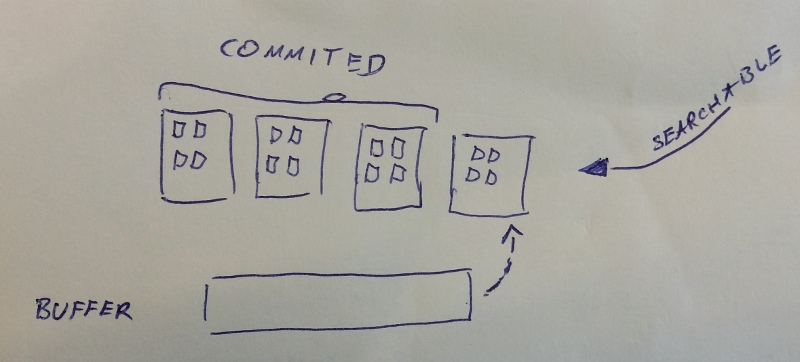 COMMITED
SEARCHABLE
BUFFER